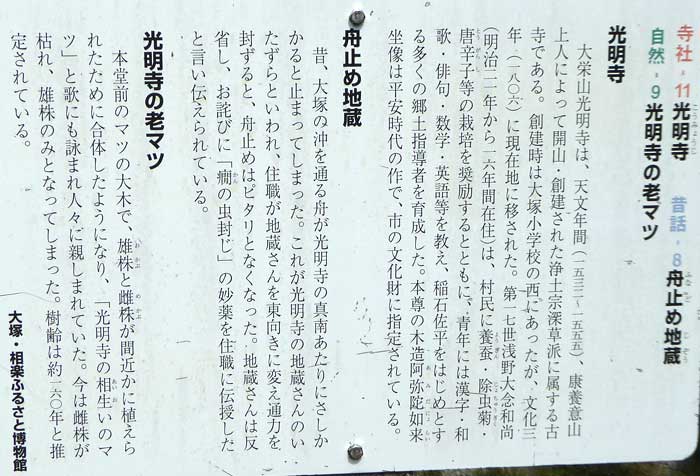 寺社-11光明寺 昔話-8舟止め地蔵
自然-9光明寺の老マツ
光明寺
大栄山光明寺は、天文年間(一五三二〜一五五五)、康養意山
上人によって開山・創建された浄土宗深草派に属する古
寺である。創建時は大塚小学校の西にあったが、文化三
年(一八〇六)に現在地に移された。第一七世浅野大念和尚
(明治二一年から一六年間在住)は、村民に養蚕・除虫菊・
唐辛子等の栽培を奨励するとともに、青年には漢字・和
歌・俳句・数学・英語等を教え、稲石佐平をはじめとす
る多くの郷土指導者を育成した。本尊の木造阿弥陀如来
坐像は平安時代の作で、市の文化財に指定されている。
舟止め地蔵
昔、大塚の沖を通る舟が光明寺の真南あたりにさしか
かると止まってしまった。これが光明寺の地蔵さんのい
たずらといわれ、住職が地蔵さんを東向きに変え通力を
封ずると、舟止めはピタリとなくなった。地蔵さんは反
省し、お詫びに「癇の虫封じ」の妙薬を住職に伝授した
と言い伝えられている。
光明寺の老マツ
本堂前のマツの大木で、雄株と雌株が間近かに植えら
れたために合体したようになり、「光明寺の相生いのマ
ツ」と歌にも詠まれ人々に親しまれていた。今は雌株が
枯れ、雄株のみとなってしまった。樹齢は約一六〇年と推
定されている。
大塚・相楽ふるさと博物館